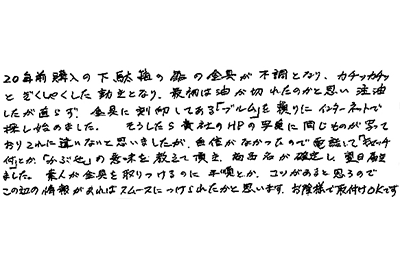 20年前購入の下駄箱の扉の金具が不調となり、カチッカチッ
とぎくしゃくした動きとなり、最初は油が切れたのかと思い注油
したが直らず、金具に刻印してある「ブルム」を頼りにインターネットで
探し始めました。 そうしたら貴社のHPの写真に同じものが写って
おりこれに違いないと思いましたが、自信がなかったので電話して「キャッチ
付とか、「かぶせ」の意味を教えて頂き、商品名が確定し、翌日届き
ました。素人が金具を取りつけるのに手順とか、コツがあると思うので
この辺の情報があればスムースにつけられたかと思います。お陰様で取付けOKです